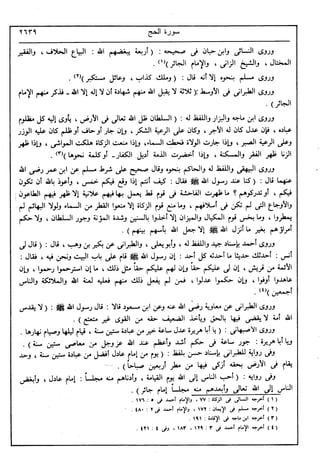 سورة الحج ٢٦٣٩
وروى النسائي وابن حبان في صحيحه : (أربعة يبغضهم الله : البياع الحلاف، والفقير
المختال، والشيخ الزاني، والإمام الجائر)(١).
وروى مسلم بنحوه إلا أنه قال : (وملك كذاب، وعائل مستكبر)(٢).
وروى الطبراني في الأوسط (ثلاثة لا يقبل الله منهم شهادة أن لا إله إلا الله - فذكر منهم الإمام
الجائر).
وروى ابن ماجه والبزار واللفظ له : (السلطان ظل الله تعالى في الأرض، يأوي إليه كل مظلوم
عباده، فإن عدل كان له الأجر، وكان على الرعية الشكر، وإن جار أو حاف أو ظلم كان عليه الوزر
وعلى الرعية الصبر، وإذا جارت الولاة قحطت السماء، وإذا منعت الزكاة هلكت المواشي، وإذا ظهر
الزنا ظهر الفقر والمسكنة، وإذا أخفرت الذمة أديل الكفار- أو كلمة نحوها)(٣).
وروى البيهقي واللفظ له والحاكم بنحوه وقال صحيح على شرط مسلم عن ابن عمر رضي الله
عنهما قال : (كنا عند رسول الله ﷺ فقال : كيف أنتم إذا وقع فيكم خمس، وأعوذ بالله أن تكون
فيكم، أو تدركوهم؟ ما ظهرت الفاحشة في قوم قط يعمل بها فيهم علانية إلا ظهر فيهم الطاعون
والأوجاع التي لم تكن في أسلافهم، وما منع قوم الزكاة إلا منعوا القطر من السماء ولولا البهائم لم
يمطروا، وما بخس قوم المكيال والميزان إلا أخذوا بالسنين وشدة المؤنة وجور السلطان، ولا حكم
أمراؤهم بغير ما أنزل الله ﷺ إلا جعل الله بأسهم بينهم).
وروى أحمد بإسناد جيد واللفظ له، وأبو يعلى، والطبراني عن بكير بن وهب، قال : (قال لي
أنس : أحدثك حديثا ما أحدثه كل أحد : إن رسول الله ﷺ قام على باب البيت ونحن فيه، فقال :
الأئمة من قريش، إن لي عليكم حقاً وإن لهم عليكم حقاً مثل ذلك، ما إن استرحموا رحموا، وإن
عاهدوا أوفوا، وإن حكموا عدلوا، فمن لم يفعل ذلك منهم فعليه لعنة الله والملائكة والناس
أجمعين)(٤).
وروى الطبراني عن معاوية رضي الله عنه وعن ابن مسعود قالا : قال رسول الله ﷺ : (لا يقدس
الله أمة لا يقضى فيها بالحق ويأخذ الضعيف حقه من القوي غير متعتع).
وروى الأصبهاني : (يا أبا هريرة عدل ساعة خير من عبادة ستين سنة، قيام ليلها وصيام نهارها.
ويا أبا هريرة : جور ساعة في حكم أشد وأعظم عند الله عز وجل من معاصي ستين سنة).
وفي رواية للطبراني بإسناد حسن بلفظ : (يوم من إمام عادل أفضل من عبادة ستين سنة، وحد
يقام في الأرض بحقه أزكى فيها من مطر أربعين صباحاً).
وفي رواية : (أحب الناس إلى الله يوم القيامة، وأدناهم منه مجلساً : إمام عادل، وأبغض
الناس إلى الله تعالى وأبعدهم منه مجلساً إمام جائر).
(١) أخرجه النسائي في الزكاة : ٧٧، والإمام أحمد في ٥ : ١٧٦.
(٢) أخرجه مسلم في الإيمان : ١٧٢، والإمام أحمد في ٢ : ٤٨٠.
(٣) أخرجه ابن ماجه في الإقامة : ١٩١.
(٤) أخرجه الإمام أحمد في ٣ : ١٢٩، ١٨٣، وفي ٤ : ٤٢١.